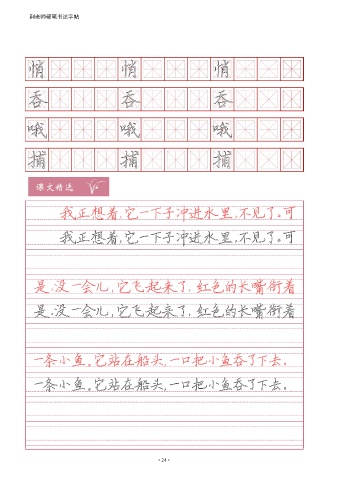 田英章硬笔书法字帖
悄 悄 悄
吞 吞 吞
哦 哦 哦
捕 捕 捕
课文精选
我正想着,它一下子冲进水里,不见了。可
我正想着,它一下子冲进水里,不见了。可
是,没一会儿,它飞起来了,红色的长嘴衔着
是,没一会儿,它飞起来了,红色的长嘴衔着
一条小鱼。它站在船头,一口把小鱼吞了下去。
一条小鱼。它站在船头,一口把小鱼吞了下去。
·24·